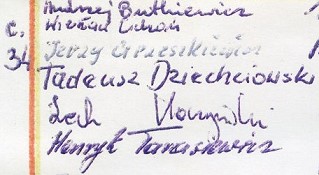 Andrzej Butkiewicz
C. Wiesław
34 Jerzy Grzeskiewicz
Tadeusz Dziechciowski
Lech
Henryk Tarasiewicz